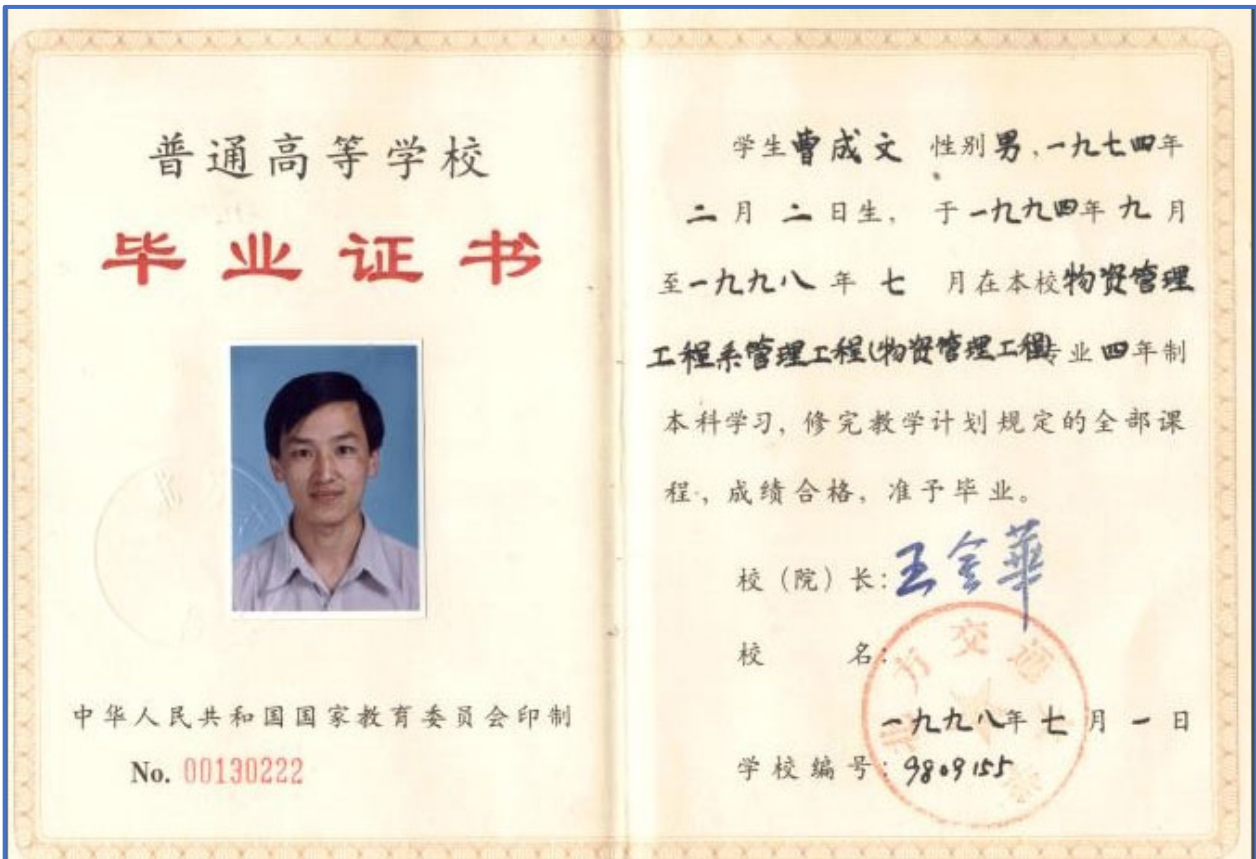 普通高等学校
毕业证书
中华人民共和国国家教育委员会印制
No. 00130222
学生曹成文 性别男,一九七四年
二月二日生, 于一九九四年九月
至一九九八年七月在本校物资管理
工程系管理工程(物资管理工程)专业四年制
本科学习, 修完教学计划规定的全部课
程, 成绩合格, 准予毕业。
校(院)长:王金華
校 名:
北方交通大学
一九九八年七月一日
学校编号:9809155